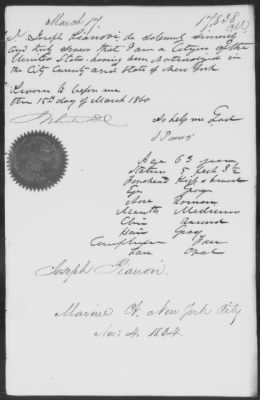 March 17
17,888
I Joseph Pianovi do Solemnly Sinceri
and truly Swear that I am a Citizen of the
United States, having been Naturalized in
the City County and State of New York
Sworn to before me
this 15th day of March 1860
So help me God
Age 63 years
Stature 5 feet 3½
Forehead High & broad
Eyes Gray
Nose Roman
Mouth Medium
Chin Round
Hair Gray
Complexion Fair
Face Oval
Joseph Pianovi.
Marine Ct. New York City
Nov: 4. 1834.